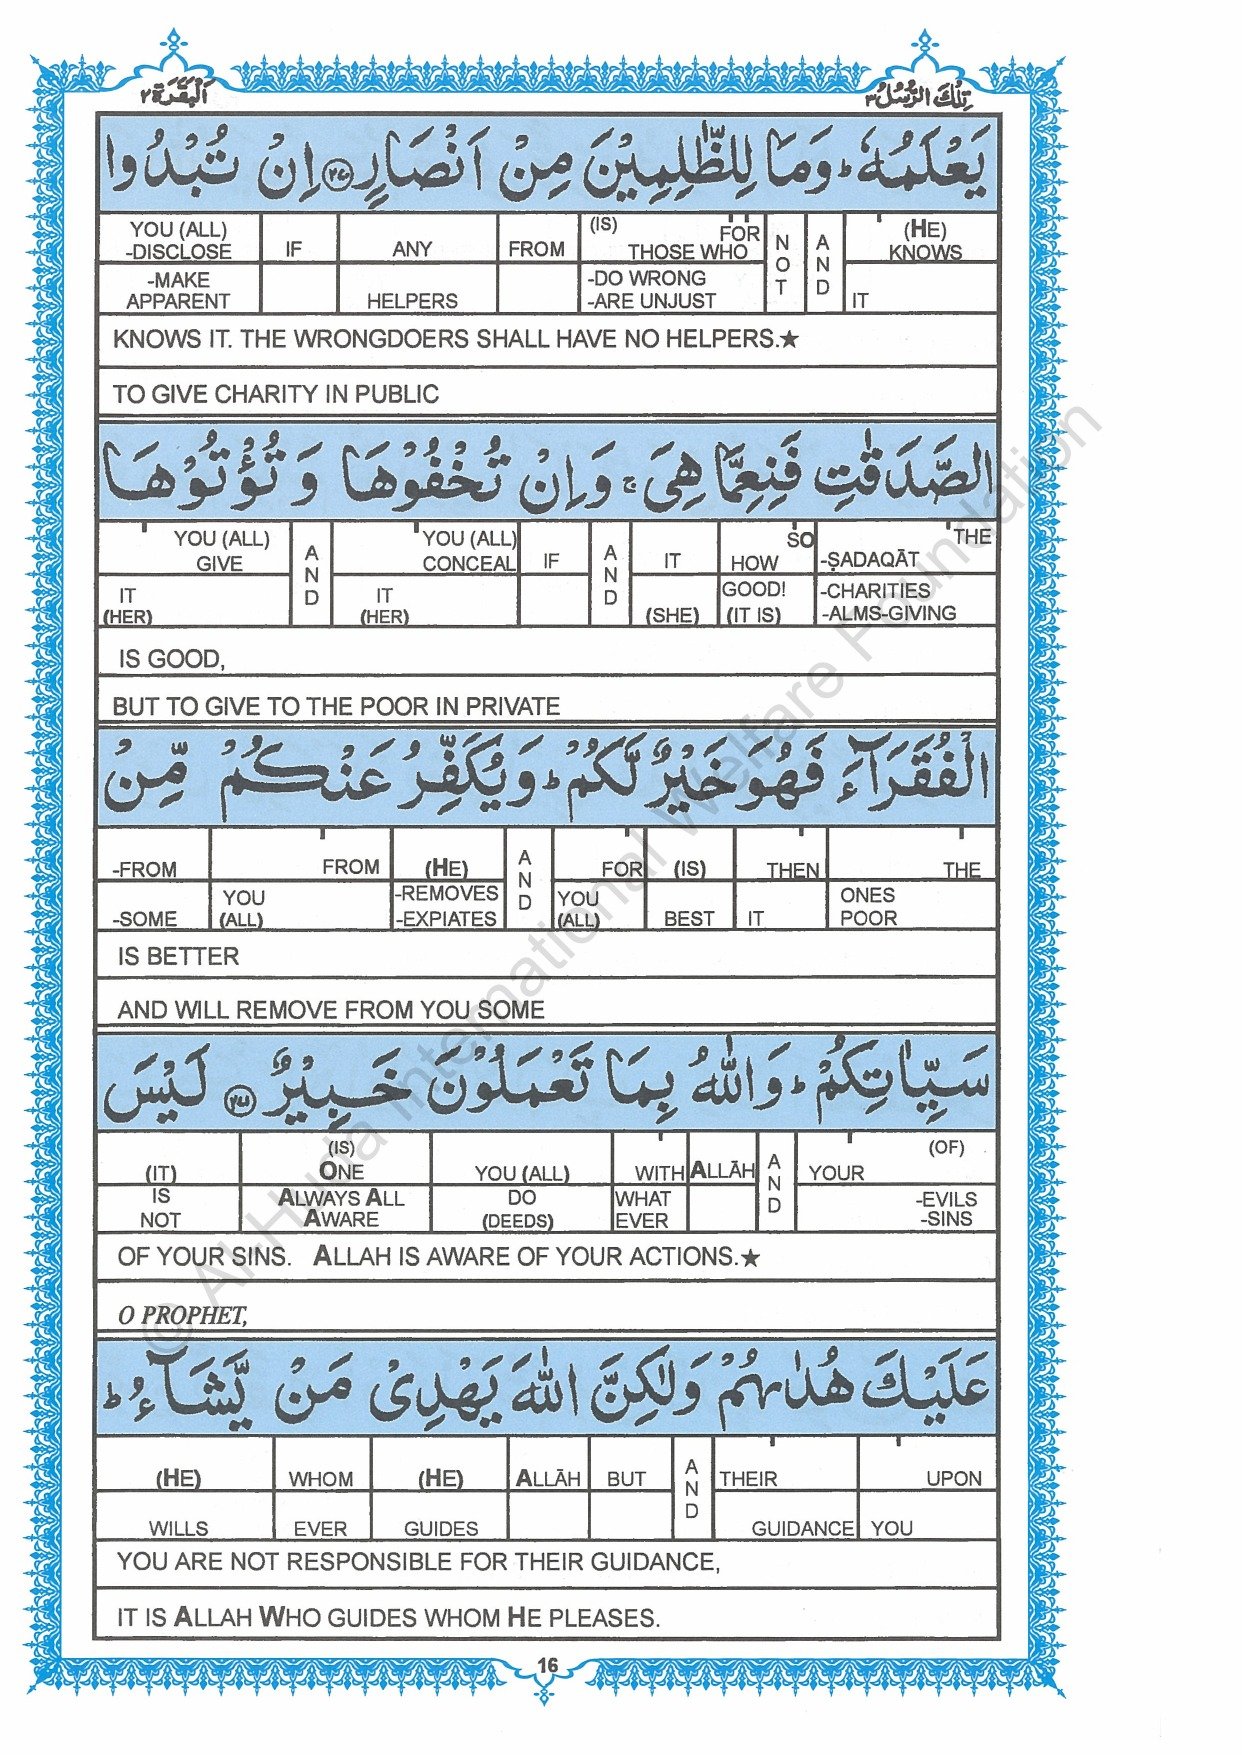 تِلْكَ الرُّسُلُ ٣
اَلْبَقَرَة ٢
يَعْلَمُهٗ ؕ وَمَا لِلظّٰلِمِيْنَ مِنْ اَنْصَارٍ ﴿۲۷۰﴾ اِنْ تُبْدُوا
YOU (ALL) -DISCLOSE IF ANY FROM (IS) FOR THOSE WHO NOT AND (HE) KNOWS
-MAKE APPARENT HELPERS -DO WRONG -ARE UNJUST IT
KNOWS IT. THE WRONGDOERS SHALL HAVE NO HELPERS.★
TO GIVE CHARITY IN PUBLIC
الصَّدَقٰتِ فَنِعِمَّا هِىَ ۚ وَاِنْ تُخْفُوْهَا وَ تُؤْتُوْهَا
YOU (ALL) GIVE AND YOU (ALL) CONCEAL IF AND IT SO HOW THE -ṢADAQĀT
IT (HER) IT (HER) (SHE) GOOD! (IT IS) -CHARITIES -ALMS-GIVING
IS GOOD,
BUT TO GIVE TO THE POOR IN PRIVATE
الْفُقَرَآءَ فَهُوَ خَيْرٌ لَّكُمْ ؕ وَيُكَفِّرُ عَنْكُمْ مِّنْ
-FROM FROM (HE) AND FOR (IS) THEN THE
-SOME YOU (ALL) -REMOVES -EXPIATES YOU (ALL) BEST IT ONES POOR
IS BETTER
AND WILL REMOVE FROM YOU SOME
سَيِّاٰتِكُمْ ؕ وَاللّٰهُ بِمَا تَعْمَلُوْنَ خَبِيْرٌ ﴿۲۷۱﴾ لَيْسَ
(IT) (IS) ONE YOU (ALL) WITH ALLĀH AND YOUR (OF)
IS NOT ALWAYS ALL AWARE DO (DEEDS) WHAT EVER -EVILS -SINS
OF YOUR SINS. ALLAH IS AWARE OF YOUR ACTIONS.★
O PROPHET,
عَلَيْكَ هُدٰىهُمْ وَلٰكِنَّ اللّٰهَ يَهْدِىْ مَنْ يَّشَآءُ ؕ
(HE) WHOM (HE) ALLĀH BUT AND THEIR UPON
WILLS EVER GUIDES GUIDANCE YOU
YOU ARE NOT RESPONSIBLE FOR THEIR GUIDANCE,
IT IS ALLAH WHO GUIDES WHOM HE PLEASES.
16
© Al-Huda International Welfare Foundation